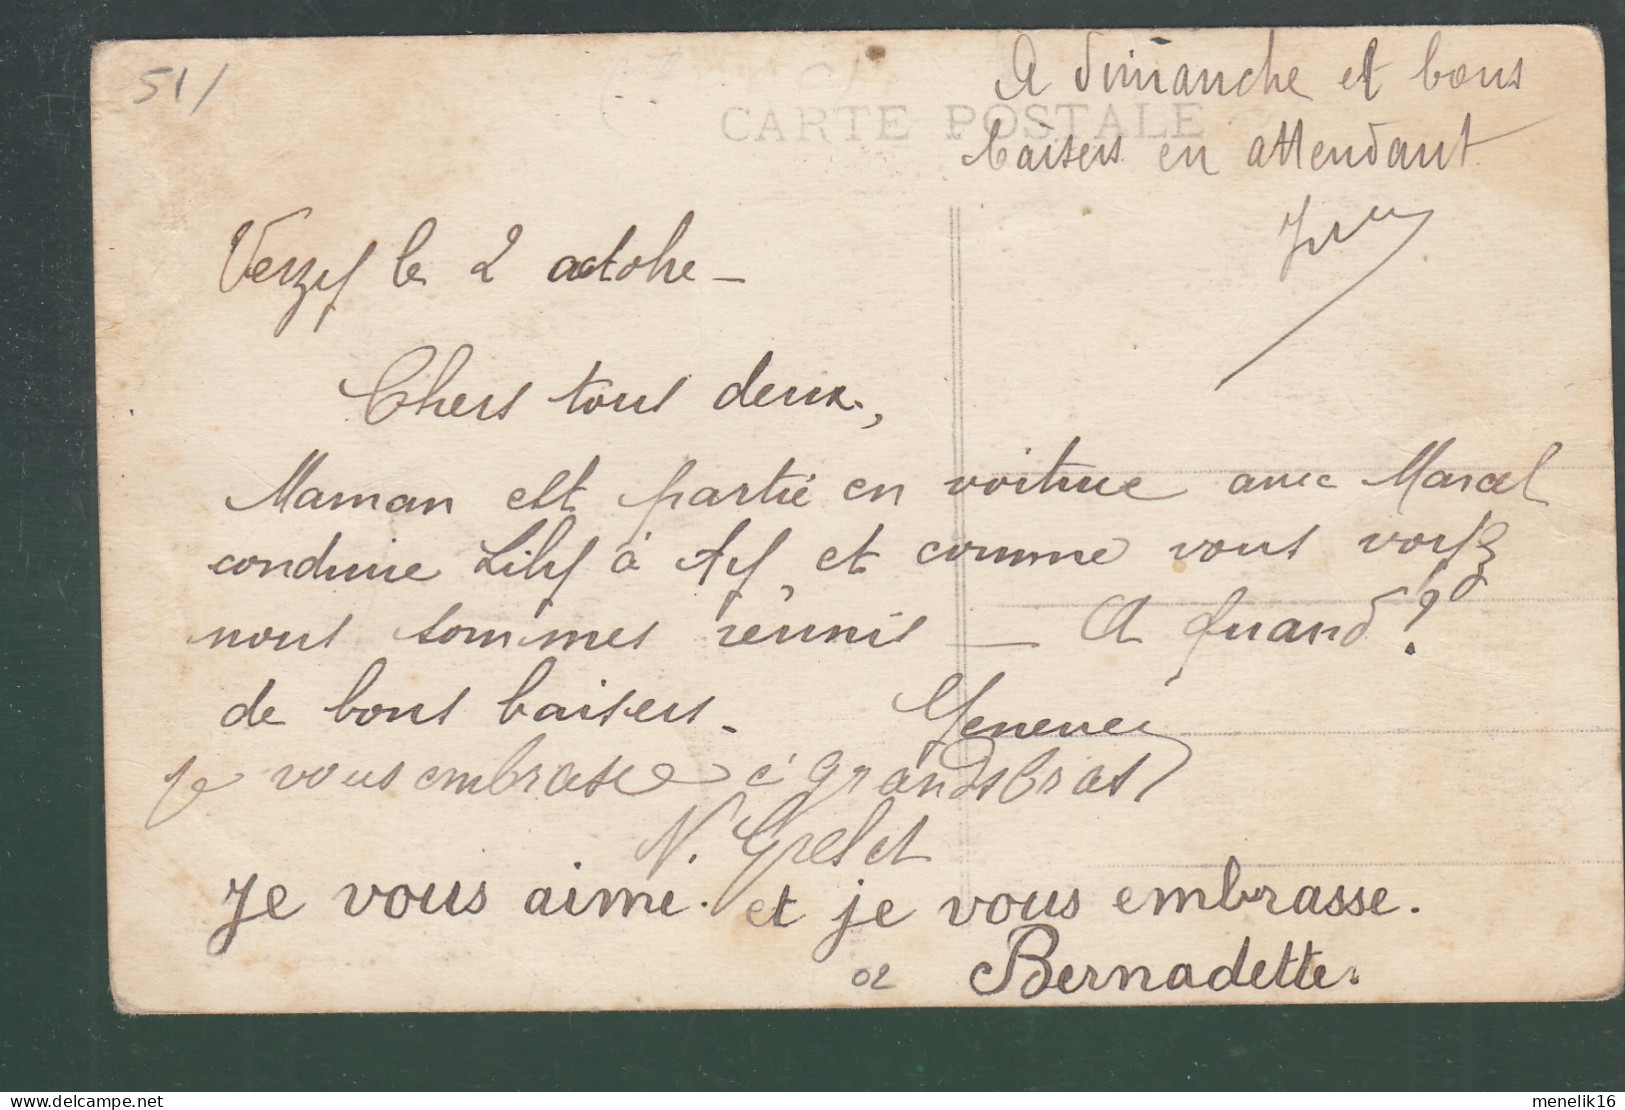 51/
CARTE POSTALE
A dimanche et bons
baisers en attendant
Verzy le 2 octobre -
Chers tous deux,
Maman est partie en voiture avec Marcel
conduire Lily à Ay, et comme vous voyez
nous sommes réunis - A quand?
de bons baisers - Genevei
je vous embrasse à grands bras
N. Grelet
Je vous aime. et je vous embrasse.
02 Bernadette.
delcampe.net
menelik16